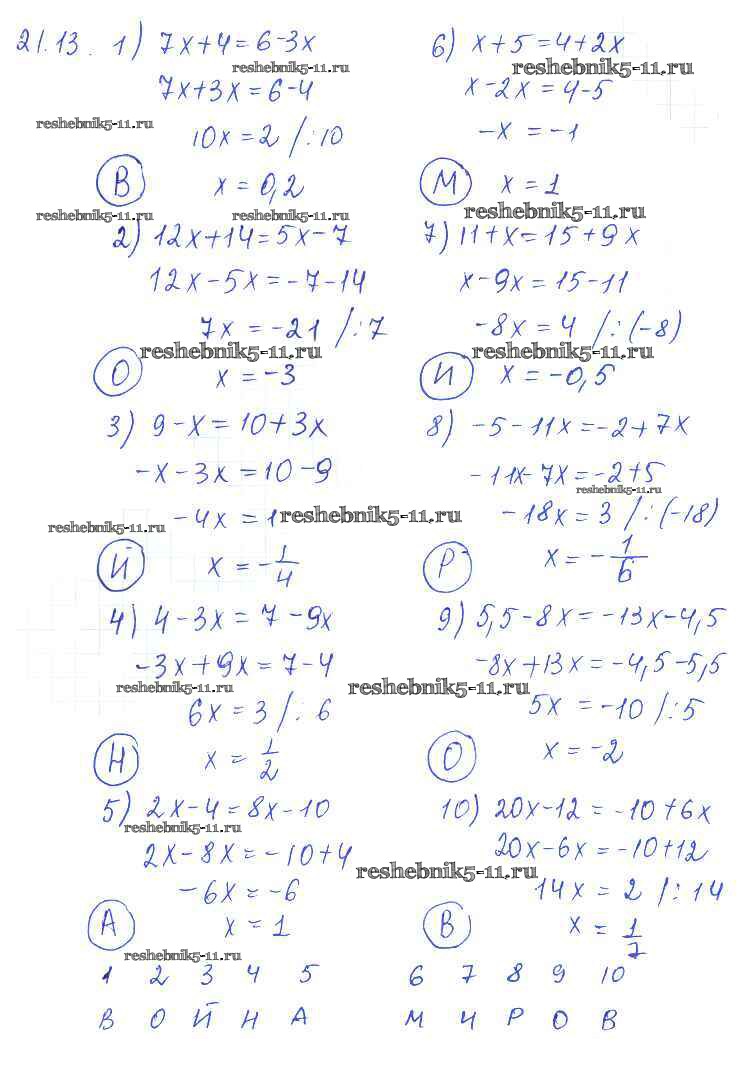 21.13. 1) 7x+4=6-3x
reshebnik5-11.ru
7x+3x=6-4
reshebnik5-11.ru
10x=2 /:10
В x=0,2
reshebnik5-11.ru reshebnik5-11.ru
2) 12x+14=5x-7
12x-5x=-7-14
7x=-21 /:7
reshebnik5-11.ru
О x=-3
3) 9-x=10+3x
-x-3x=10-9
-4x=1
reshebnik5-11.ru
reshebnik5-11.ru
Й x=-1/4
4) 4-3x=7-9x
-3x+9x=7-4
reshebnik5-11.ru
6x=3 /:6
Н x=1/2
5) 2x-4=8x-10
reshebnik5-11.ru
2x-8x=-10+4
-6x=-6
А x=1
reshebnik5-11.ru
6) x+5=4+2x
reshebnik5-11.ru
x-2x=4-5
-x=-1
М x=1
reshebnik5-11.ru
7) 11+x=15+9x
x-9x=15-11
-8x=4 /:(-8)
reshebnik5-11.ru
И x=-0,5
8) -5-11x=-2+7x
-11x-7x=-2+5
reshebnik5-11.ru
-18x=3 /:(-18)
Р x=-1/6
9) 5,5-8x=-13x-4,5
-8x+13x=-4,5-5,5
reshebnik5-11.ru
5x=-10 /:5
О x=-2
10) 20x-12=-10+6x
20x-6x=-10+12
reshebnik5-11.ru
14x=2 /:14
В x=1/7
1 2 3 4 5 6 7 8 9 10
В О Й Н А М И Р О В